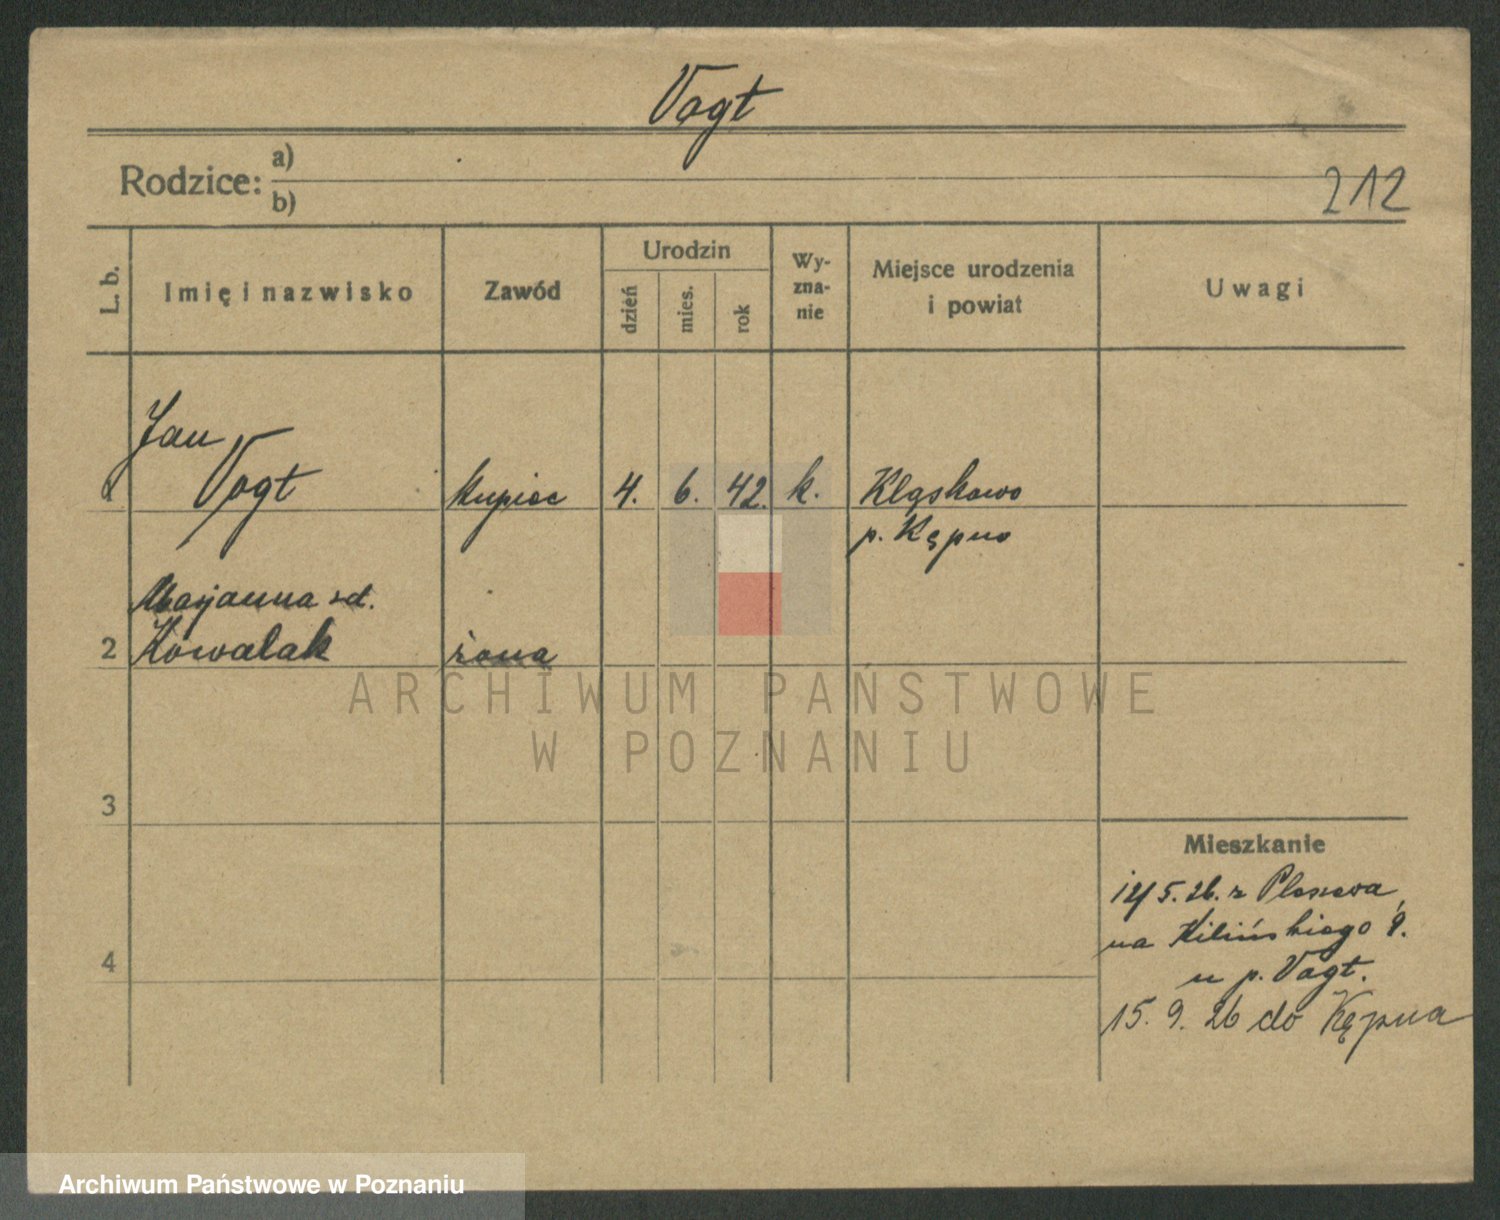 Vogt
Rodzice: a)
b)
212
L. b.
Imię i nazwisko
Zawód
Urodzin
dzień
mies.
rok
Wy-
zna-
nie
Miejsce urodzenia
i powiat
Uwagi
Jan
Vogt
kupiec
4. 6. 42. k.
Kląskowo
p. Kępno
Maryanna zd.
2 Kowalak
żona
ARCHIWUM PAŃSTWOWE
W POZNANIU
3
4
Mieszkanie
5.26. z Pleszewa,
na Kilińskiego 9.
u p. Vogt.
15. 9. 26 do Kępna
Archiwum Państwowe w Poznaniu